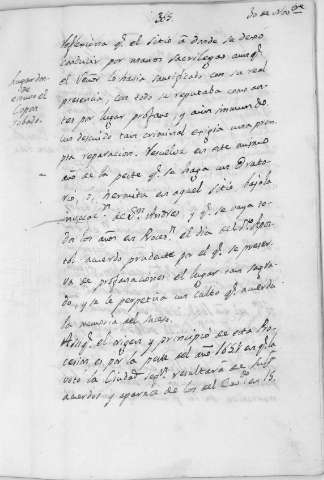 365
30 de Nov.re
Lugar don-
de
estuvo el
Copon
robado.
qe. el sitio á donde se dexó
por manos sacrilegas aunqe.
el Señor lo havia santificado con su real
presencia, con todo se reputaba como an-
tes por lugar profano, y aun inmundo.
un descuido tan criminal exigia una pron-
ta reparacion. Resuelve en este mismo
año de la peste qe. se haga un Orato-
rio, ó hermita en aquel sitio bajo la
invocacn. de Sn. Andres, y qe. se vaya to-
dos los años en Procesn. el dia del Sto. Apos-
tol: acuerdo prudente por el qe. se preser-
va de profanaciones el lugar tan sagra-
do, y se le perpetúa un culto qe. acuerda
la memoria del suceso.
Aunqe. el origen y principio de esta Pro-
cesion es por la peste del año 1651 en qe. la
votó la Ciudad segn. resultara de sus
acuerdos, y aparece de los del en 15,